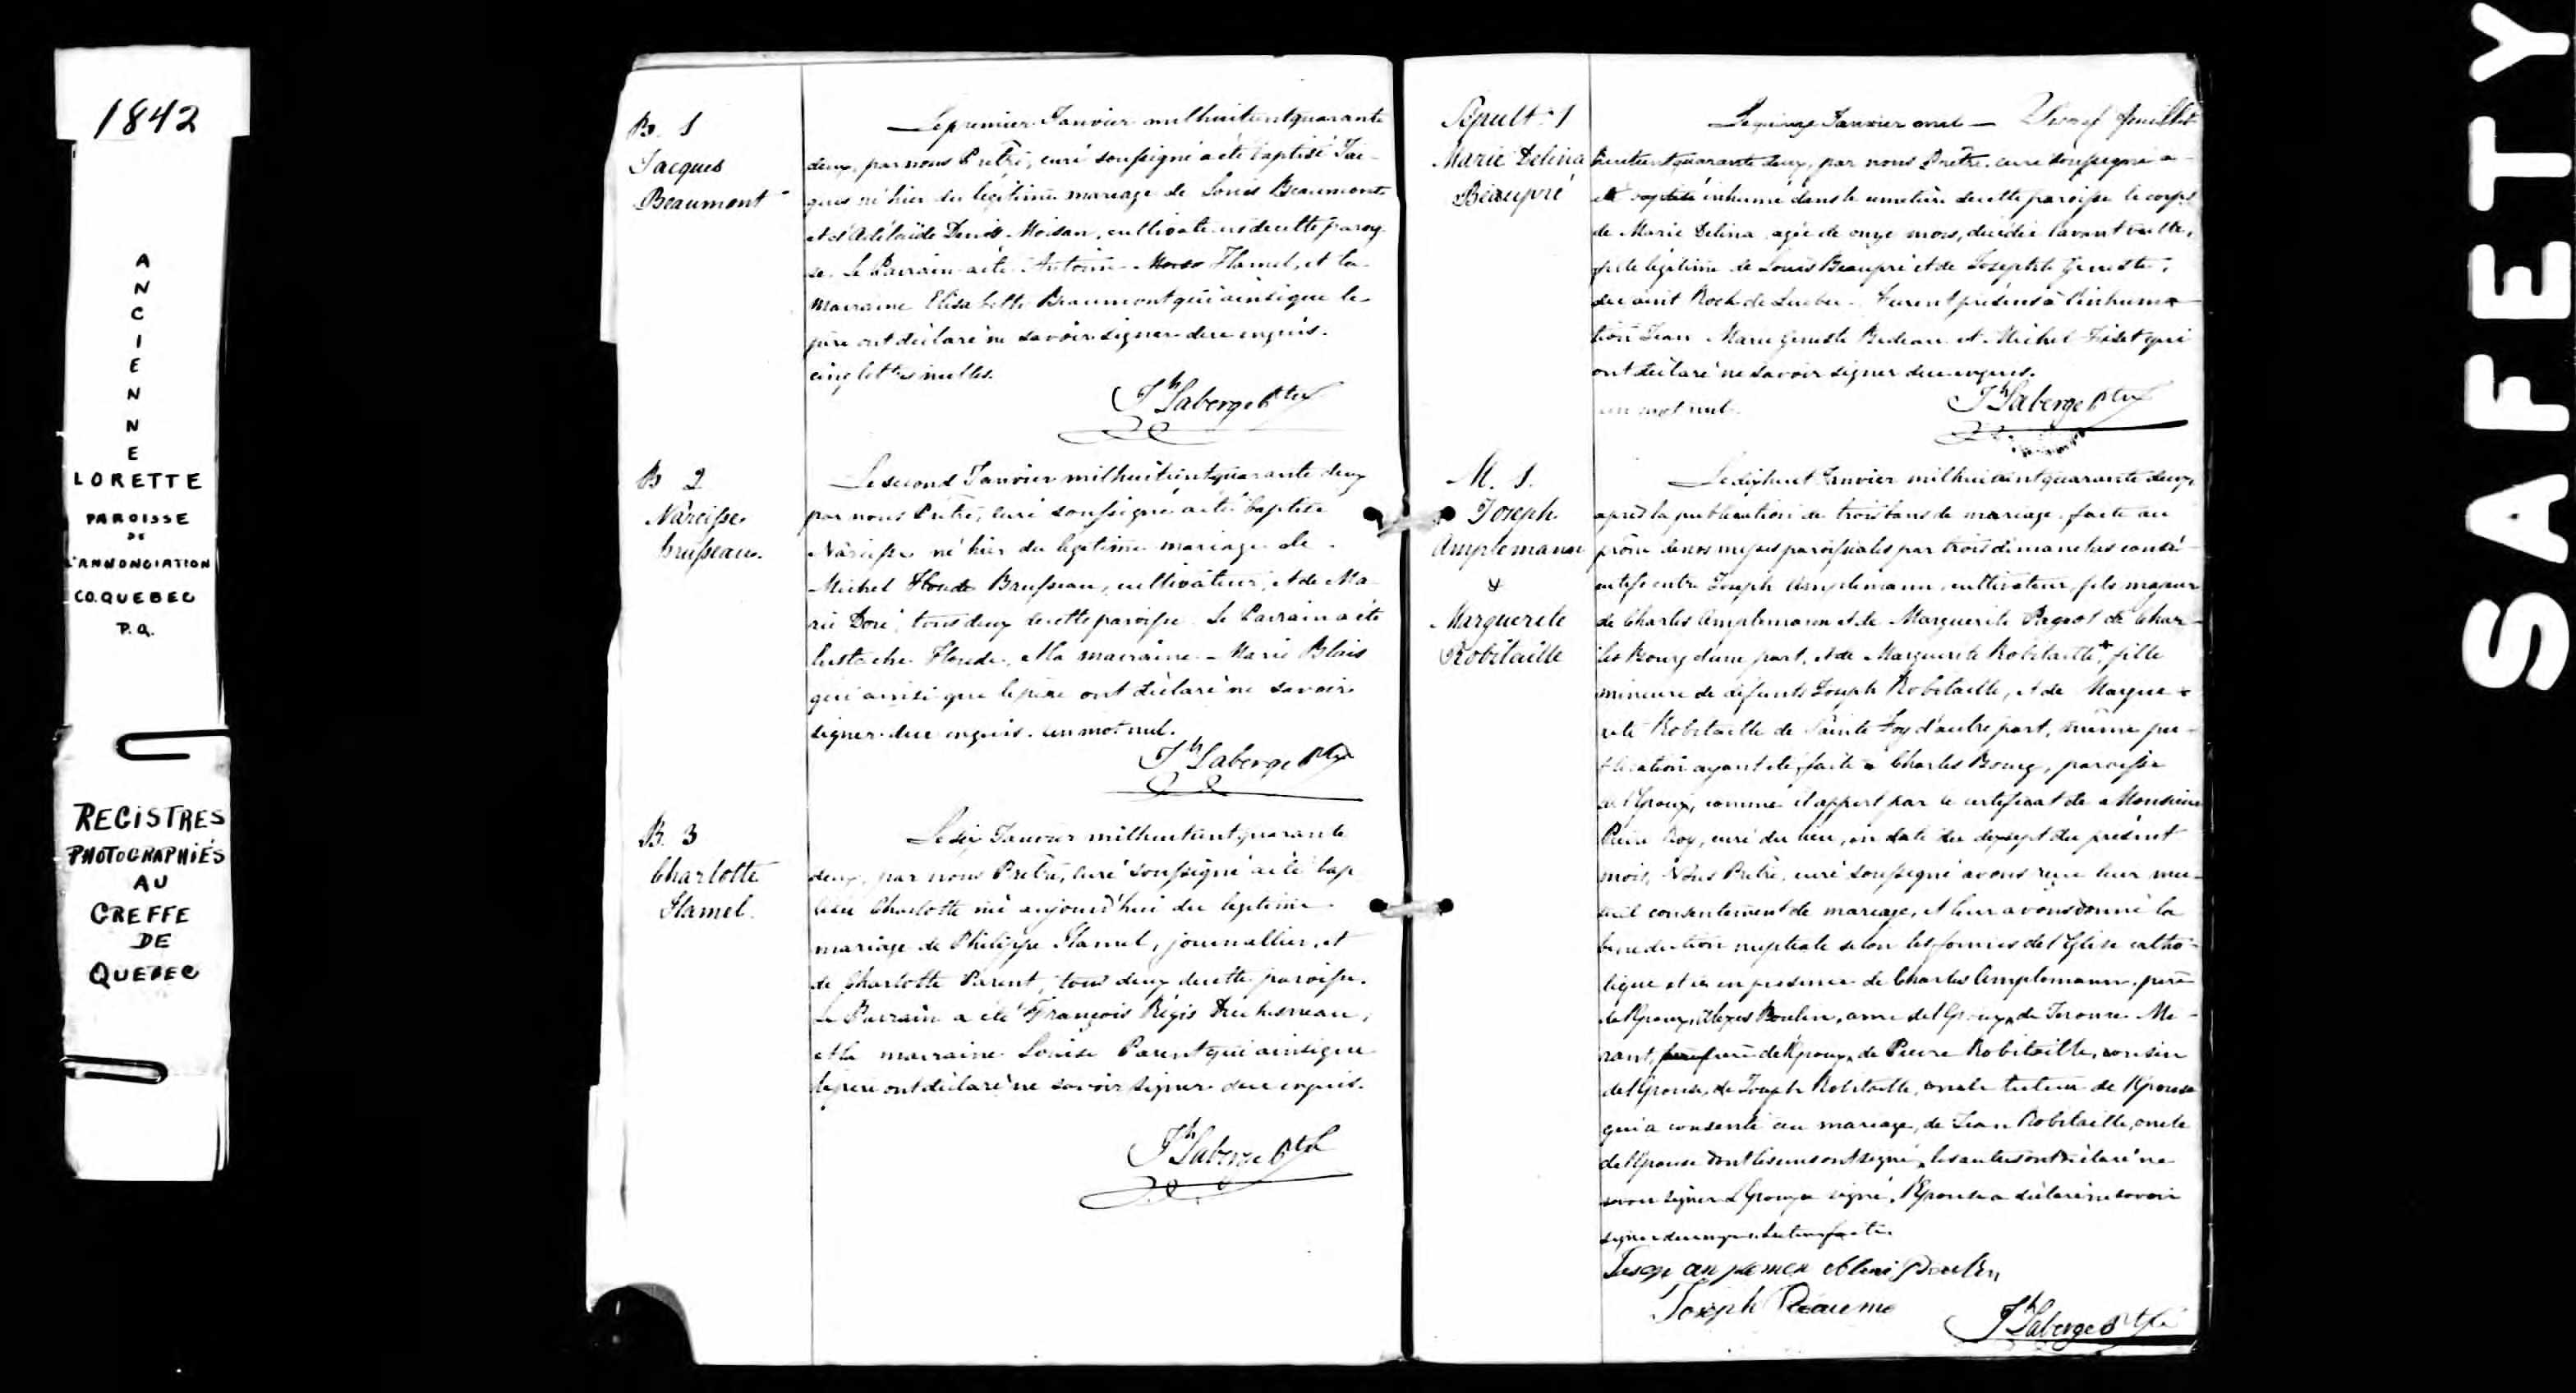 1842
ANCIENNE
LORETTE
PAROISSE
DE
L'ANNONCIATION
CO. QUEBEC
P.Q.
REGISTRES
PHOTOGRAPHIÉS
AU
GREFFE
DE
QUEBEC
B. 1
Jacques
Beaumont
Le premier Janvier mil huit cent quarante
deux, par nous Prêtre, curé soussigné a été baptisé Jac-
ques né hier du légitime mariage de Louis Beaumont
et d'Adélaïde Denis Moisan, cultivateurs de cette parois-
se. Le Parrain a été Antoine Hamel, et la
marraine Elisabeth Beaumont qui ainsi que le
père ont déclaré ne savoir signer de ce enquis.
cinq lettres nulles.
Jh Laberge Ptre
B 2
Narcisse
Brusseau.
Le second Janvier mil huit cent quarante deux
par nous Prêtre, curé soussigné a été baptisé
Narcisse né hier du légitime mariage de
Michel Houde Brusseau, cultivateur, et de Ma-
rie Doré, tous deux de cette paroisse. Le Parrain a été
Eustache Houde, et la marraine Marie Blais
qui ainsi que le père ont déclaré ne savoir
signer de ce enquis. un mot nul.
Jh Laberge Ptre
B. 3
Charlotte
Hamel.
Le six Janvier mil huit cent quarante
deux, par nous Prêtre, curé soussigné a été bap-
tisée Charlotte née aujourd'hui du légitime
mariage de Philippe Hamel, journallier, et
de Charlotte Parent, tous deux de cette paroisse.
Le Parrain a été François Régis Duchesneau,
et la marraine Louise Parent qui ainsi que
le père ont déclaré ne savoir signer de ce enquis.
Jh Laberge Ptre
Sépult. 1
Marie Delina
Beaupré
Le quinze Janvier mil — feuillet
huit cent quarante deux, par nous Prêtre, curé soussigné a
été baptisé inhumé dans le cimetière de cette paroisse le corps
de Marie Delina agée de onze mois, décédée l'avant veille,
fille légitime de Louis Beaupré et de Josephte Geneste,
de Saint Roch de Québec. Furent présens à l'inhuma-
tion Jean Marie Geneste Bedeau et Michel Fiset qui
ont déclaré ne savoir signer de ce enquis.
un mot nul.
Jh Laberge Ptre
M. 1.
Joseph
Amplemann
&
Marguerite
Robitaille
Le dix huit Janvier mil huit cent quarante deux,
après la publication de trois bans de mariage faite au
prône de nos messes paroissiales par trois dimanches consé-
cutifs entre Joseph Amplemann, cultivateur, fils majeur
de Charles Amplemann et de Marguerite Pageot de Char-
les Bourg d'une part, et de Marguerite Robitaille, fille
mineure de défunts Joseph Robitaille, et de Margue-
rite Robitaille de Sainte Foy d'autre part, même pu-
blication ayant été faite à Charles Bourg, paroisse
de l'Epoux, comme il appert par le certificat de Monsieur
Pierre Roy, curé du lieu, en date du dix sept du présent
mois, Nous Prêtre, curé soussigné avons reçu leur mu-
tuel consentement de mariage, et leur avons donné la
bénédiction nuptiale selon les formes de l'Eglise catho-
lique et ce en présence de Charles Amplemann, père
de l'Epoux, Alexis Boulin, ami de l'Epoux, de
de l'Epoux, de Pierre Robitaille, cousin
de l'Epouse, de Joseph Robitaille, oncle tuteur de l'Epouse
qui a consenti au mariage, de Jean Robitaille, oncle
de l'Epouse dont les uns ont signé, les autres ont déclaré ne
savoir signer L'Epoux a signé, l'Epouse a déclaré ne savoir
signer de ce enquis. Lecture faite.
Joseph Reaume
Jh Laberge Ptre
SAFETY